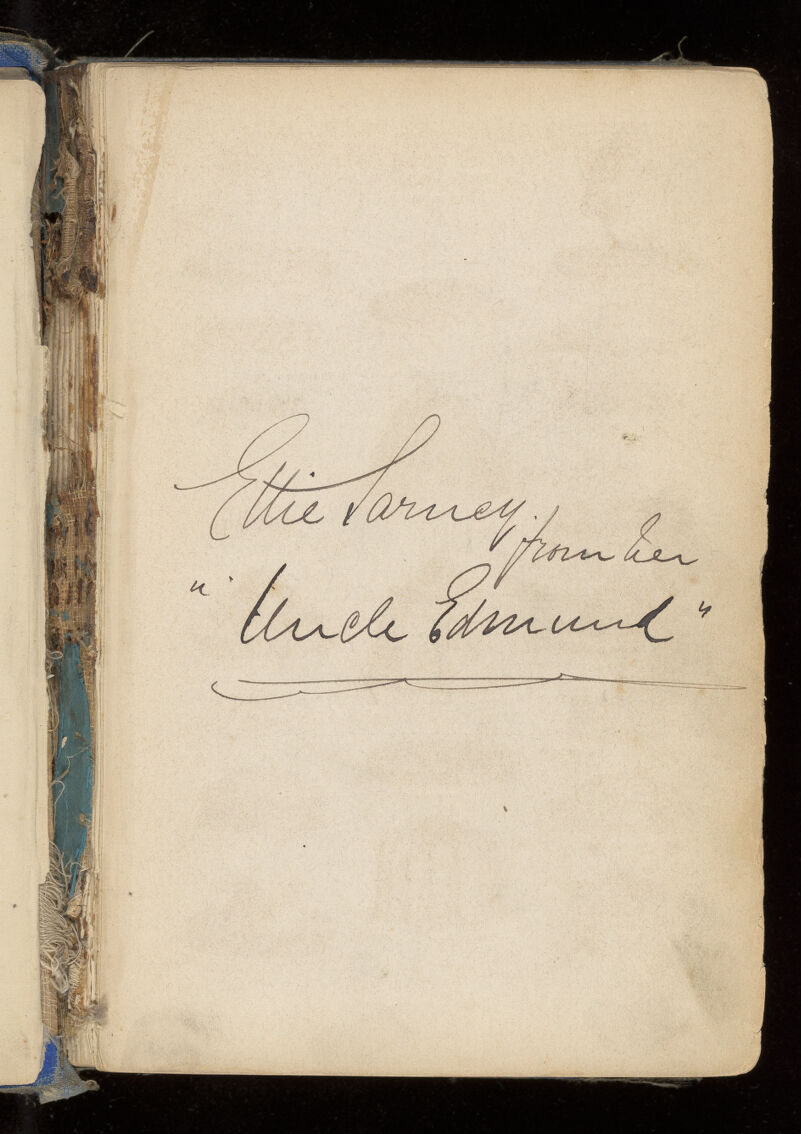 Ettie Sarney.
from her
" Uncle Edmund "